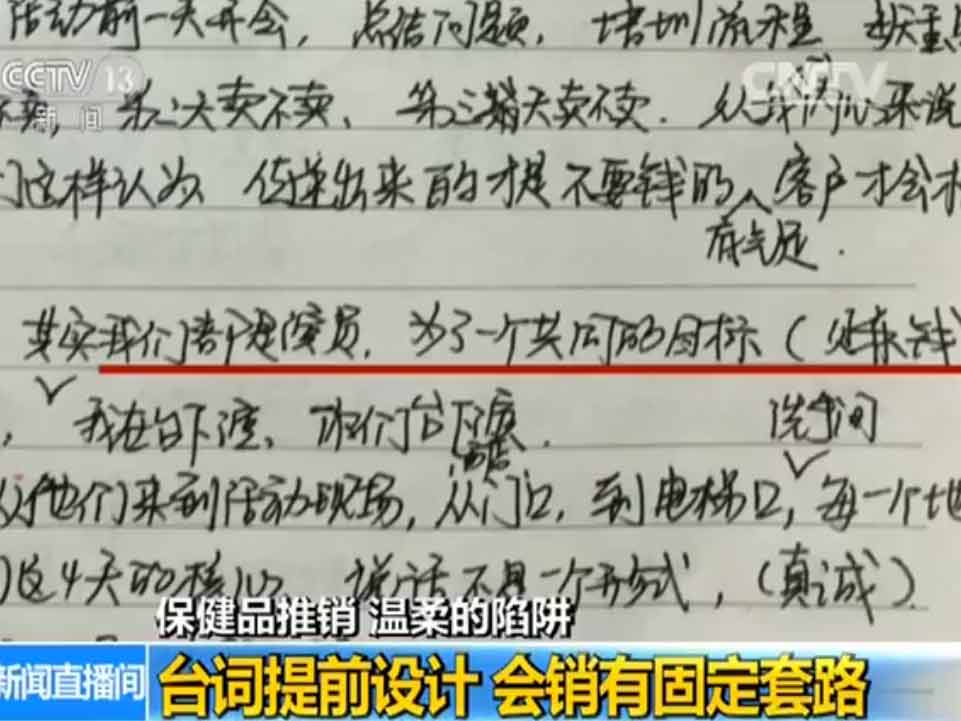 活动前一天开会，总结问题，培训流程
CCTV 13
新闻
CNTV
第二天卖不卖、第三天卖不卖．从我们心来说
们这样认为 传单出来的才是不要钱的，客户才会
有气足．
其实我们都是演员，为了一个共同的目标（
，我在台下演，你们台下演． 洗手间
酒店
从他们来到活动现场，从门口，到电梯口，每一个地
这4天的核心 说话不是一个形式，（真诚）．
保健品推销 温柔的陷阱
新闻直播间
台词提前设计 会销有固定套路